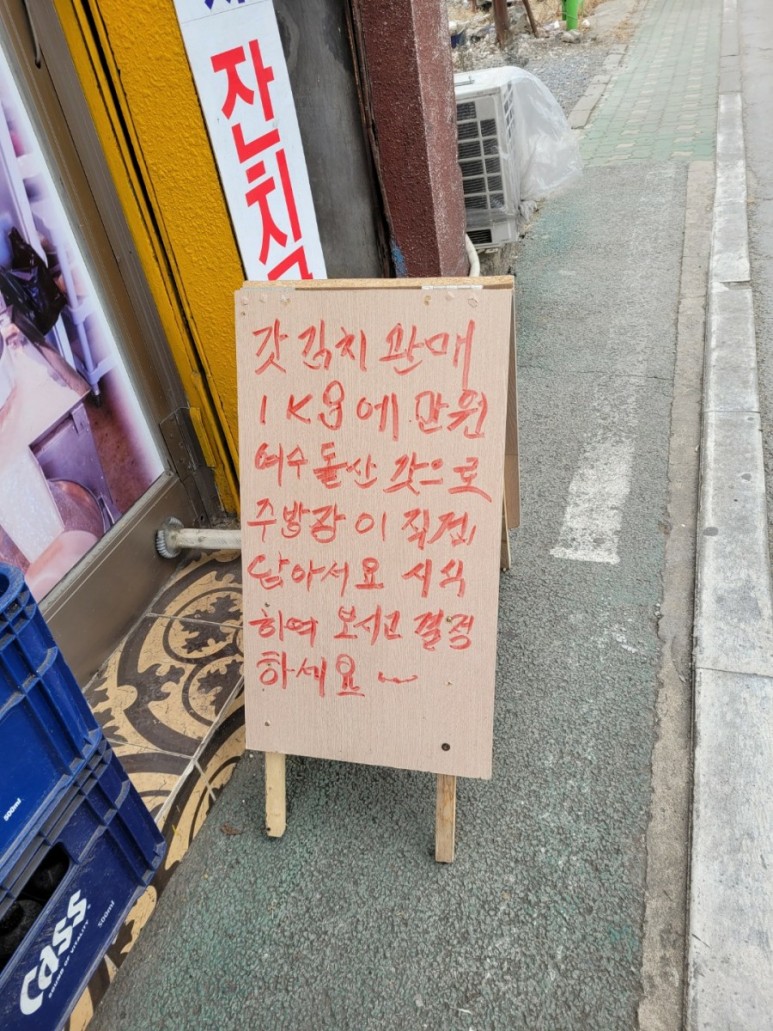 잔치국
갓김치 판매
1Kg에 만원
여수돌산 갓으로
주방장이 직접
담아서요 시식
하여 보시고 결정
하세요~
500ml
Cass
SOUND OF VITALITY
500ml